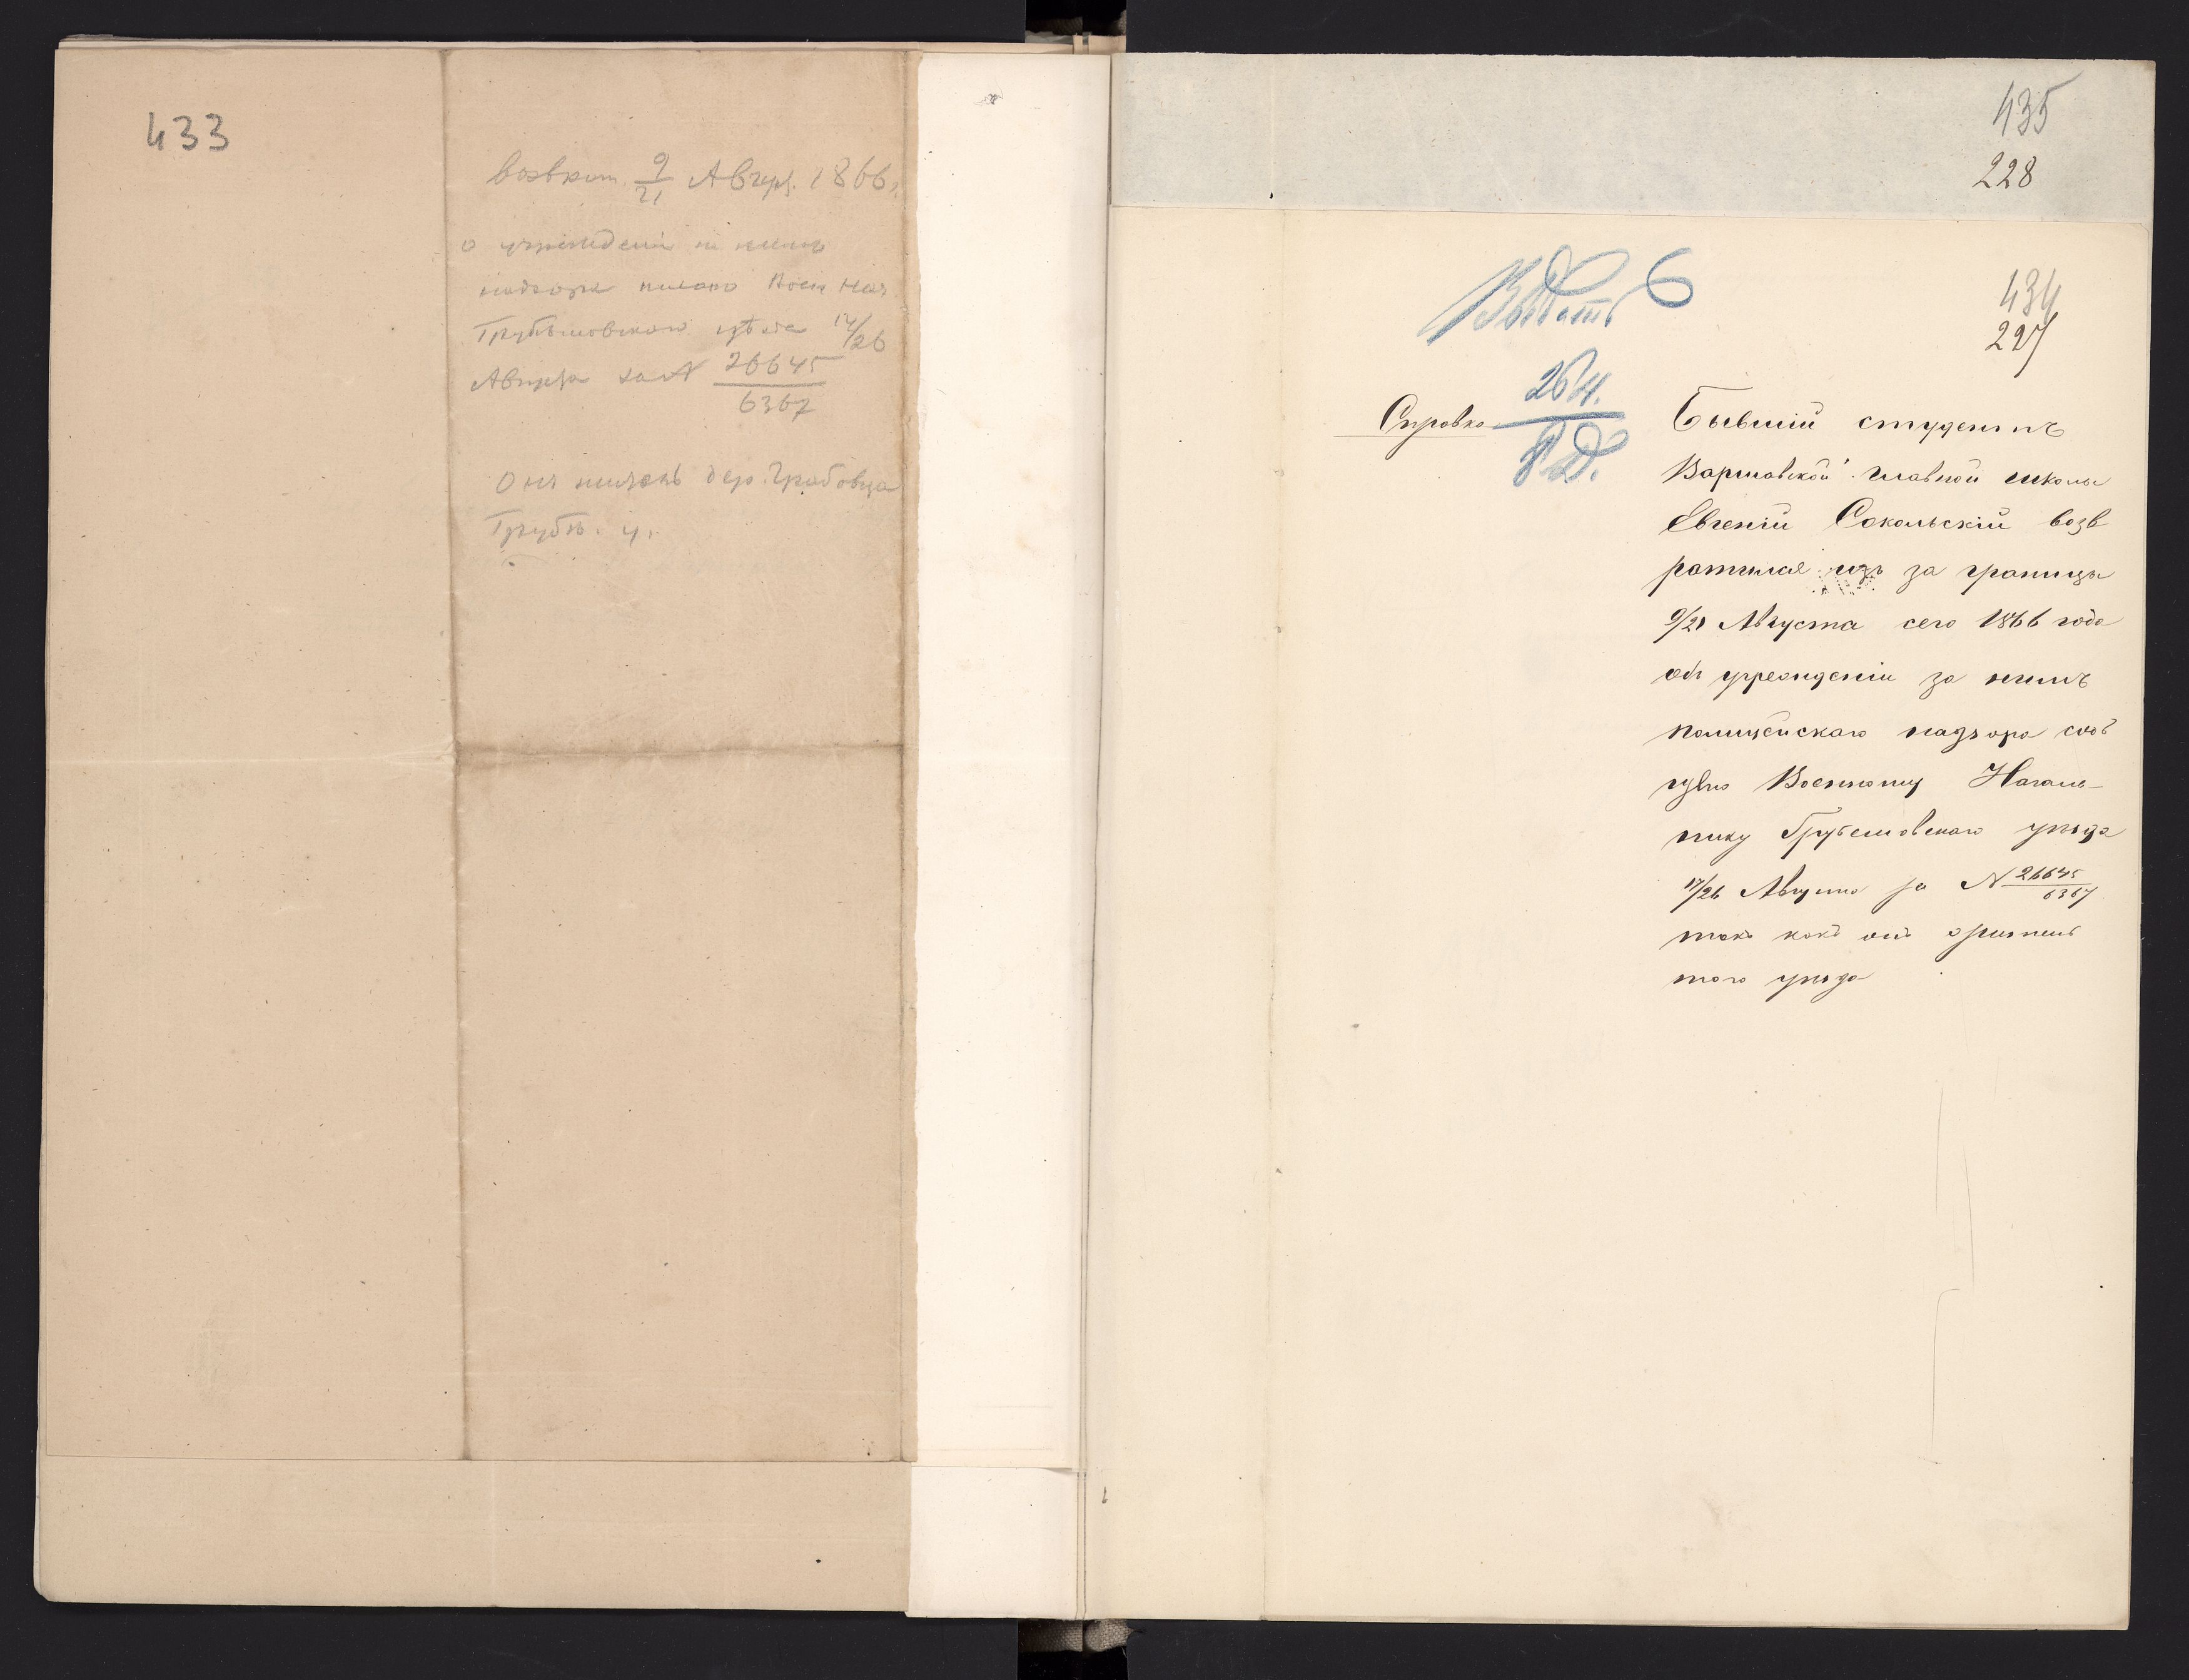 433
возврат. 9/21 Август. 1866.
о учрежденіи за нимъ
надзора писано Воен Нач
Грубешовскаго уѣзда 14/26
Августа за N 26645/6367
Онъ житель дер. Грабовца
Грубеш. у.
435
228
Выдать
434
227
26 Н.
Справка
Бывшій студентъ
Варшавской главной школы
Евгеній Сокольскій возв
ратился изъ за границы
9/21 Августа сего 1866 года
объ учрежденіи за нимъ
полицейскаго надзора сооб
щено Военному Началь-
нику Грубешовскаго уѣзда
14/26 Августа за N 26645/6367
такъ какъ онъ житель
того уѣзда